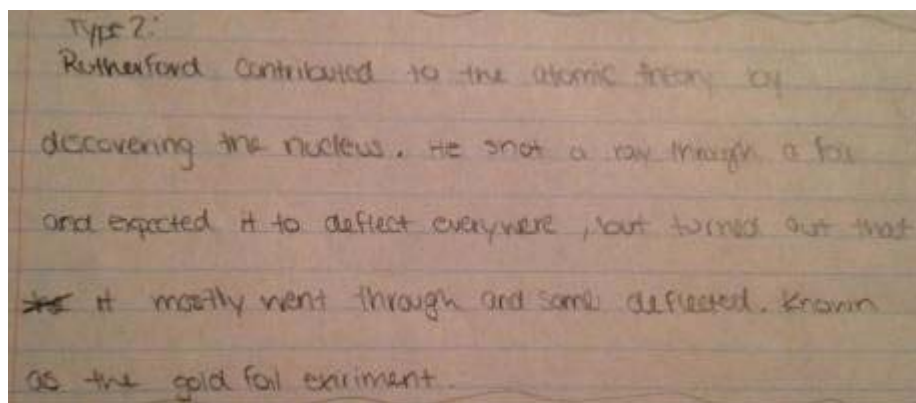 Type 2:
Rutherford contributed to the atomic theory by
decovering the nucleus. He shot a ray through a foil
and expected it to deflect everywere, but turned out that
it mostly went through and some deflected. Known
as the gold foil exriment.